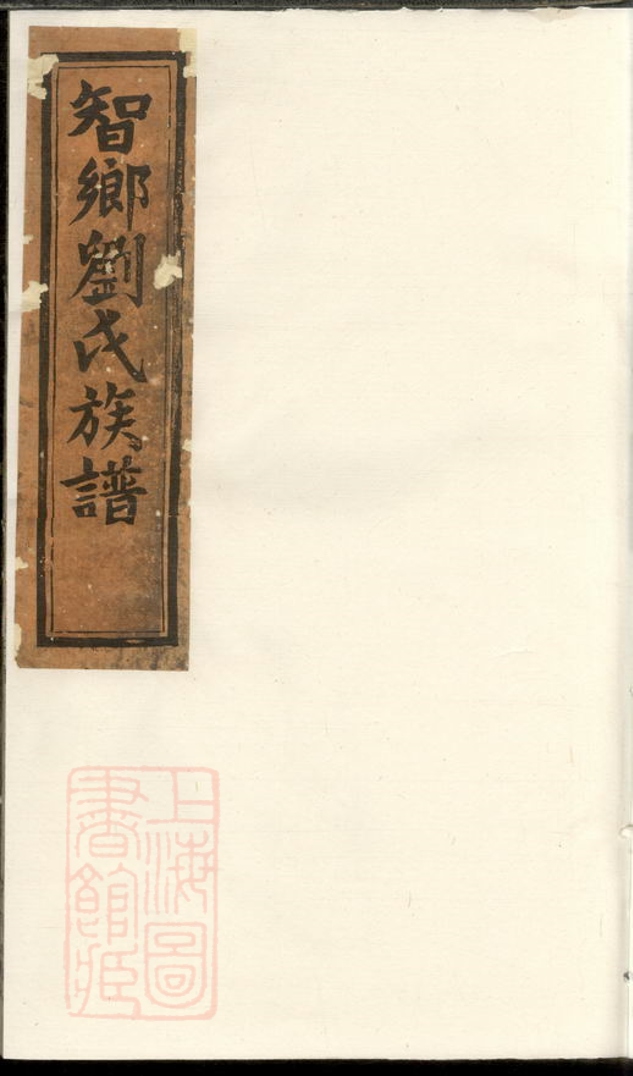 智鄉劉氏族譜
上海圖
書館藏